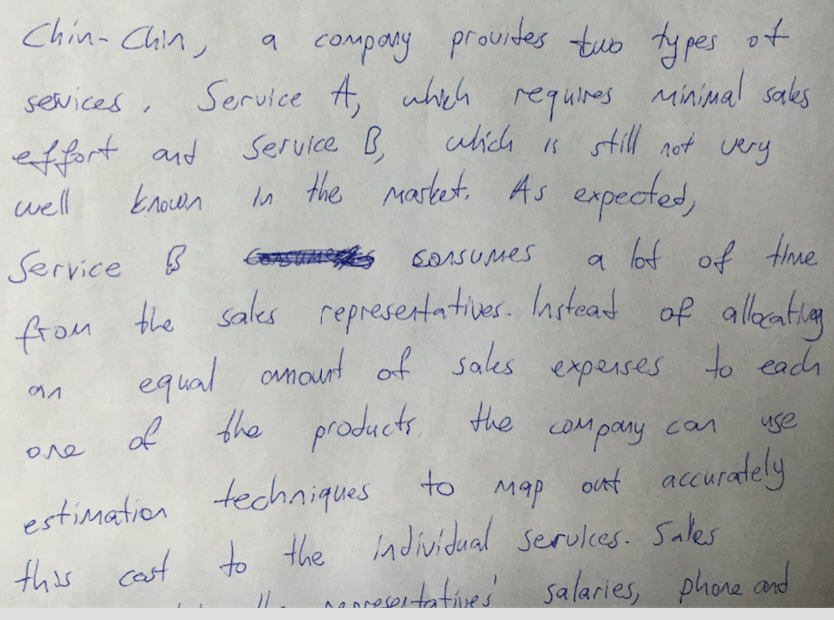 Chin-Chin, a company provides two types of
services. Service A, which requires minimal sales
effort and Service B, which is still not very
well known in the market. As expected,
Service B consumes a lot of time
from the sales representatives. Instead of allocating
an equal amount of sales expenses to each
one of the products. the company can use
estimation techniques to map out accurately
this cost to the individual services. Sales
representatives' salaries, phone and